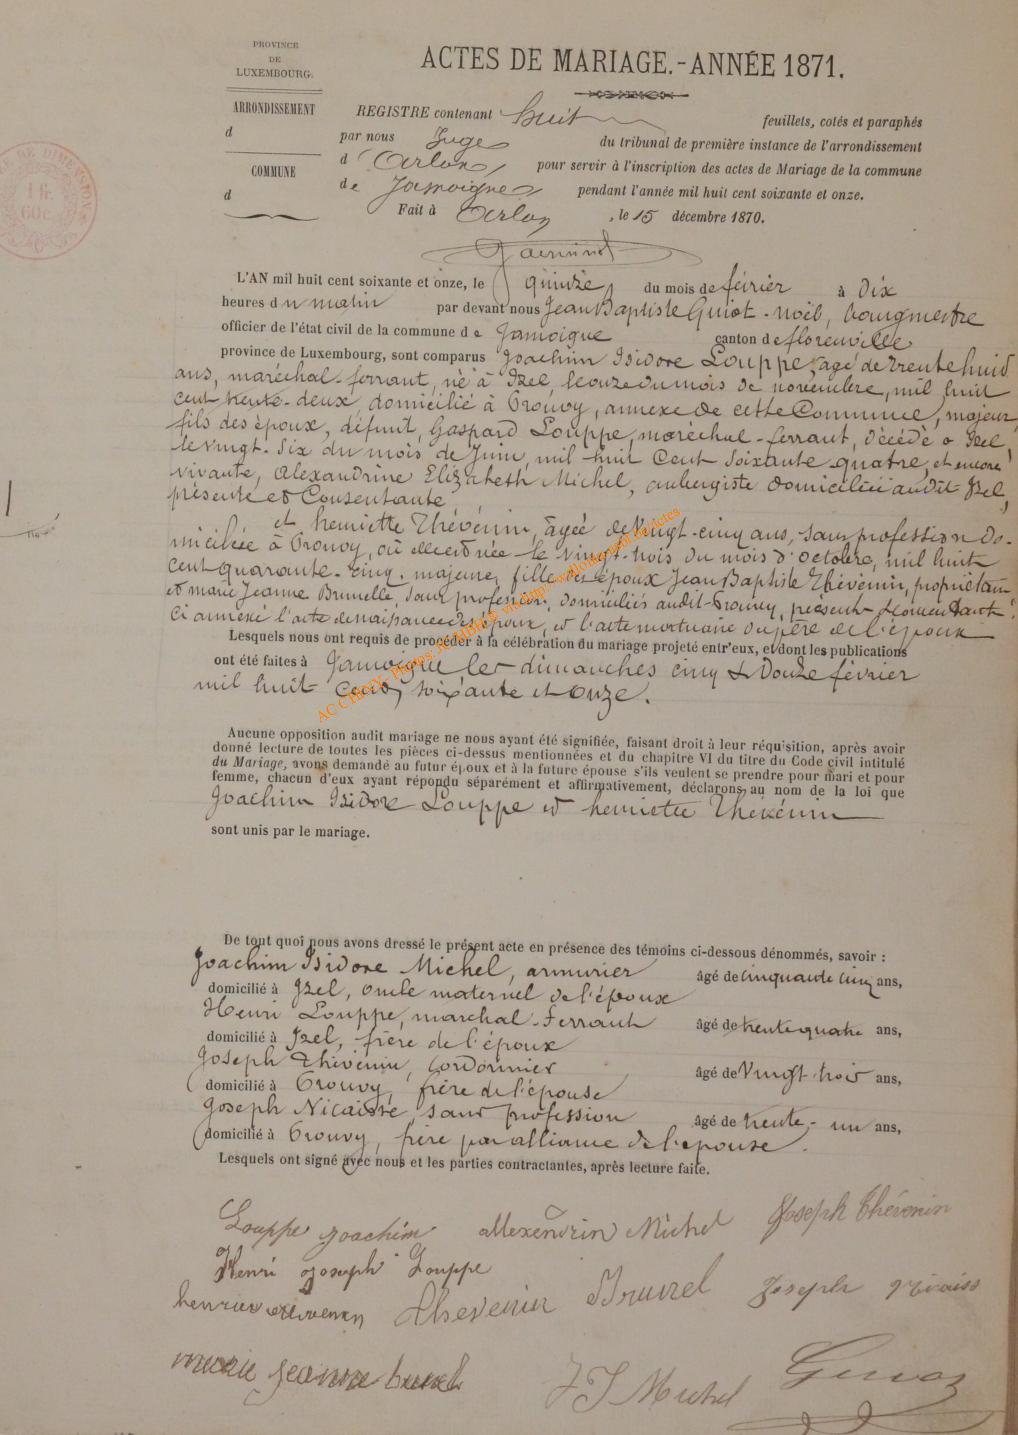 PROVINCE
DE
LUXEMBOURG.
ARRONDISSEMENT
d
COMMUNE
d
1 fr.
60c.
ACTES DE MARIAGE.-ANNÉE 1871.
REGISTRE contenant huit feuillets, cotés et paraphés
par nous Juge du tribunal de première instance de l'arrondissement
d Arlon, pour servir à l'inscription des actes de Mariage de la commune
de Jamoigne pendant l'année mil huit cent soixante et onze.
Fait à Arlon, le 15 décembre 1870.
L'AN mil huit cent soixante et onze, le quinze du mois de février à Dix
heures du matin par devant nous Jean Baptiste Guiot-Noël, bourgmestre
officier de l'état civil de la commune de Jamoigne canton de florenville
province de Luxembourg, sont comparus Joachim Isidore Louppe, agé de trente huid
ans, maréchal-ferrant, né à Izel, le onze du mois de novembre, mil huit
cent trente-deux domicilié à Prouvy, annexe de cette Commune, majeur,
fils des époux, défunt, Gaspard Louppe, maréchal-ferrant, décédé à Izel,
le vingt-six du mois de Juin, mil huit Cent soixante-quatre, et encore
vivante, Alexandrine Elizabeth Michel, aubergiste domiciliée audit Izel,
présente et Consentante
et henriette Thévenin, âgée de vingt-cinq ans, sans profession do-
miciliée à Prouvy, où elle est née le vingt-trois du mois d'octobre, mil huit
cent quarante-cinq, majeure, fille des époux Jean Baptiste Thévenin, propriétaire
et marie Jeanne Brunelle, sans profession, domiciliés audit-Prouvy, présents & consentants.
Ci annexé l'acte de naissance des époux, et l'acte mortuaire du père de l'époux
Lesquels nous ont requis de procéder à la célébration du mariage projeté entr'eux, et dont les publications
ont été faites à Jamoigne les dimanches cinq & Douze février
mil huit Cent soixante et onze.
AC CHINY - Photos: JC MBH @ via http://www.lotissement.be/actes
Aucune opposition audit mariage ne nous ayant été signifiée, faisant droit à leur réquisition, après avoir
donné lecture de toutes les pièces ci-dessus mentionnées et du chapitre VI du titre du Code civil intitulé
du Mariage, avons demandé au futur époux et à la future épouse s'ils veulent se prendre pour mari et pour
femme, chacun d'eux ayant répondu séparément et affirmativement, déclarons au nom de la loi que
Joachim Isidore Louppe et henriette Thévenin
sont unis par le mariage.
De tout quoi nous avons dressé le présent acte en présence des témoins ci-dessous dénommés, savoir :
Joachim Isidore Michel, armurier âgé de cinquante cinq ans,
domicilié à Izel, oncle maternel de l'époux
Henri Louppe, marchal-Ferrant âgé de trente quatre ans,
domicilié à Izel, frère de l'époux
Joseph Thévenin, Cordonnier âgé de Vingt-trois ans,
domicilié à Prouvy, frère de l'épouse
Joseph Nicaisse, sans profession âgé de trente-un ans,
domicilié à Prouvy, frère par alliance de l'épouse.
Lesquels ont signé avec nous et les parties contractantes, après lecture faite.
Louppe Joachim allexendrin Michel Joseph Thévenin
Henri Joseph Louppe
Thevenin Brunel Joseph
marie jeanne brunel J I Michel